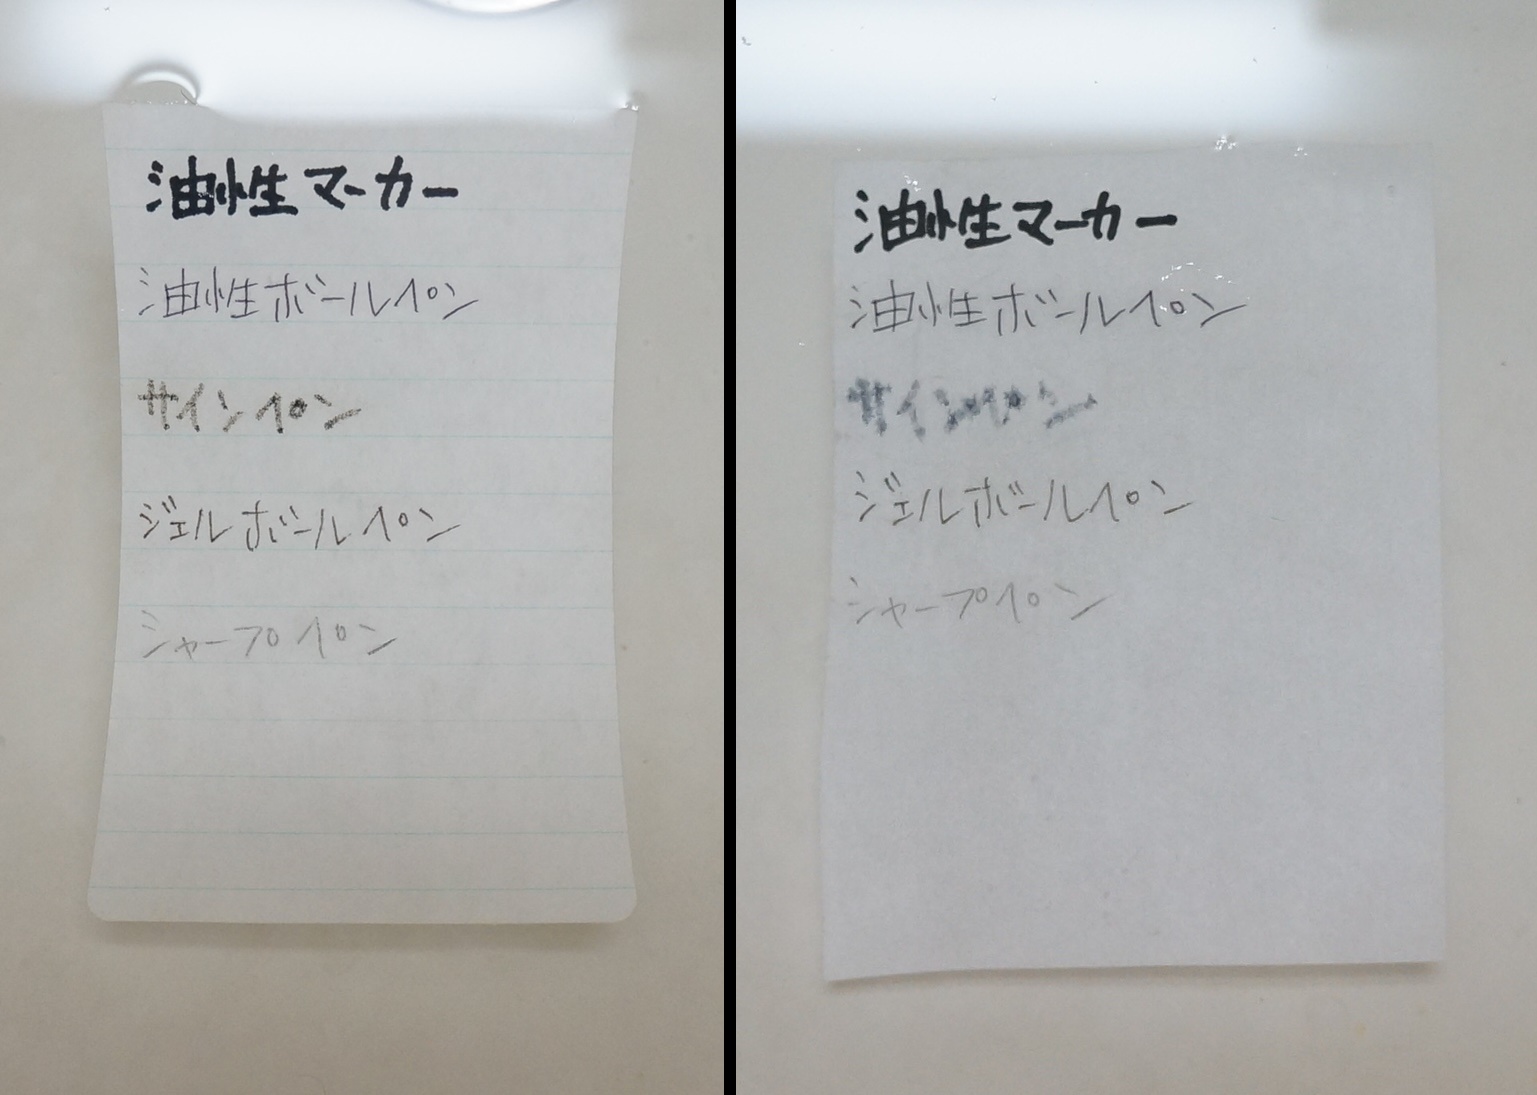 油性マーカー
油性ボールペン
サインペン
ジェルボールペン
シャープペン
油性マーカー
油性ボールペン
サインペン
ジェルボールペン
シャープペン